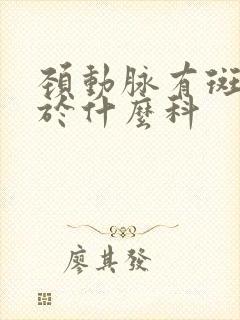 頚動脉有斑
於什麼科
廖其發